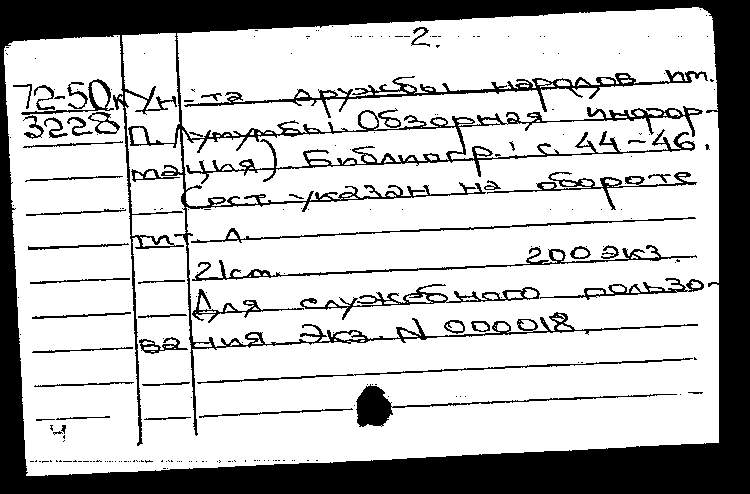 2.
72-50к Ун-та дружбы народов им.
3228 П. Лумумбы. Обзорная инфор-
мация) Библиогр.: с. 44-46.
Сост. указан на обороте
тит. л.
21см. 200 экз.
Для служебного пользо-
вания. Экз. N 000018.
4